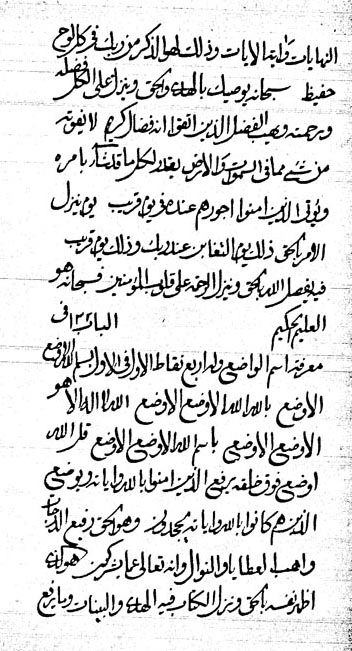 النهايات وانها الايات وذلك لهو الذكر من ربك فى كل لوح
حفيظ سبحانه يوصيك بالهدى والحق وينزل على الكل فضله
ورحمته ويهب الفضل الذين اتقوا انه فضال كريم لا يفوته
من شئ مما فى السموات والارض يقدر لكل ما قد شاء بامره
ويؤتى الذين امنوا اجورهم عنده فى يوم قريب يوم ينزل
الامر بالحق ذلك يوم التغابن عند ربك وذلك يوم قريب
فيه يفصل الله بالحق وينزل الرحمة على قلوب المؤمنين فسبحانه هو
العليم الحكيم الباب فى
معرفة اسم الواضع وله اربع نقاط الاول فى الاول بسم الله الاوضع
الاوضع بالله الله الاوضع الاوضع الله لا اله الا هو
الاوضع الاوضع باسم الله الاوضع الاوضع قل الله
اوضع فوق خلقه يرفع الذين امنوا بالله واياته ويوضع
الذين هم كانوا بالله واياته يجحدون وهو الحق رفيع الدرجات
واهب العطايا والنوال وانه تعالى عما يشركون هو الذى
اظهر نفسه بالحق وينزل الكتاب فيه الهدى والبينات وبه يرفع